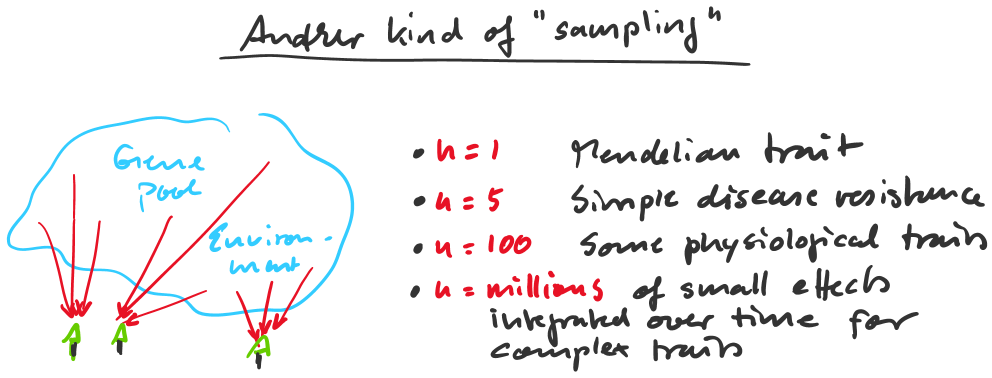 Another kind of "sampling"
Gene
pool
Environ-
ment
• n = 1 Mendelian trait
• n = 5 Simple disease resistence
• n = 100 Some physiological traits
• n = millions of small effects
integrated over time for
complex traits